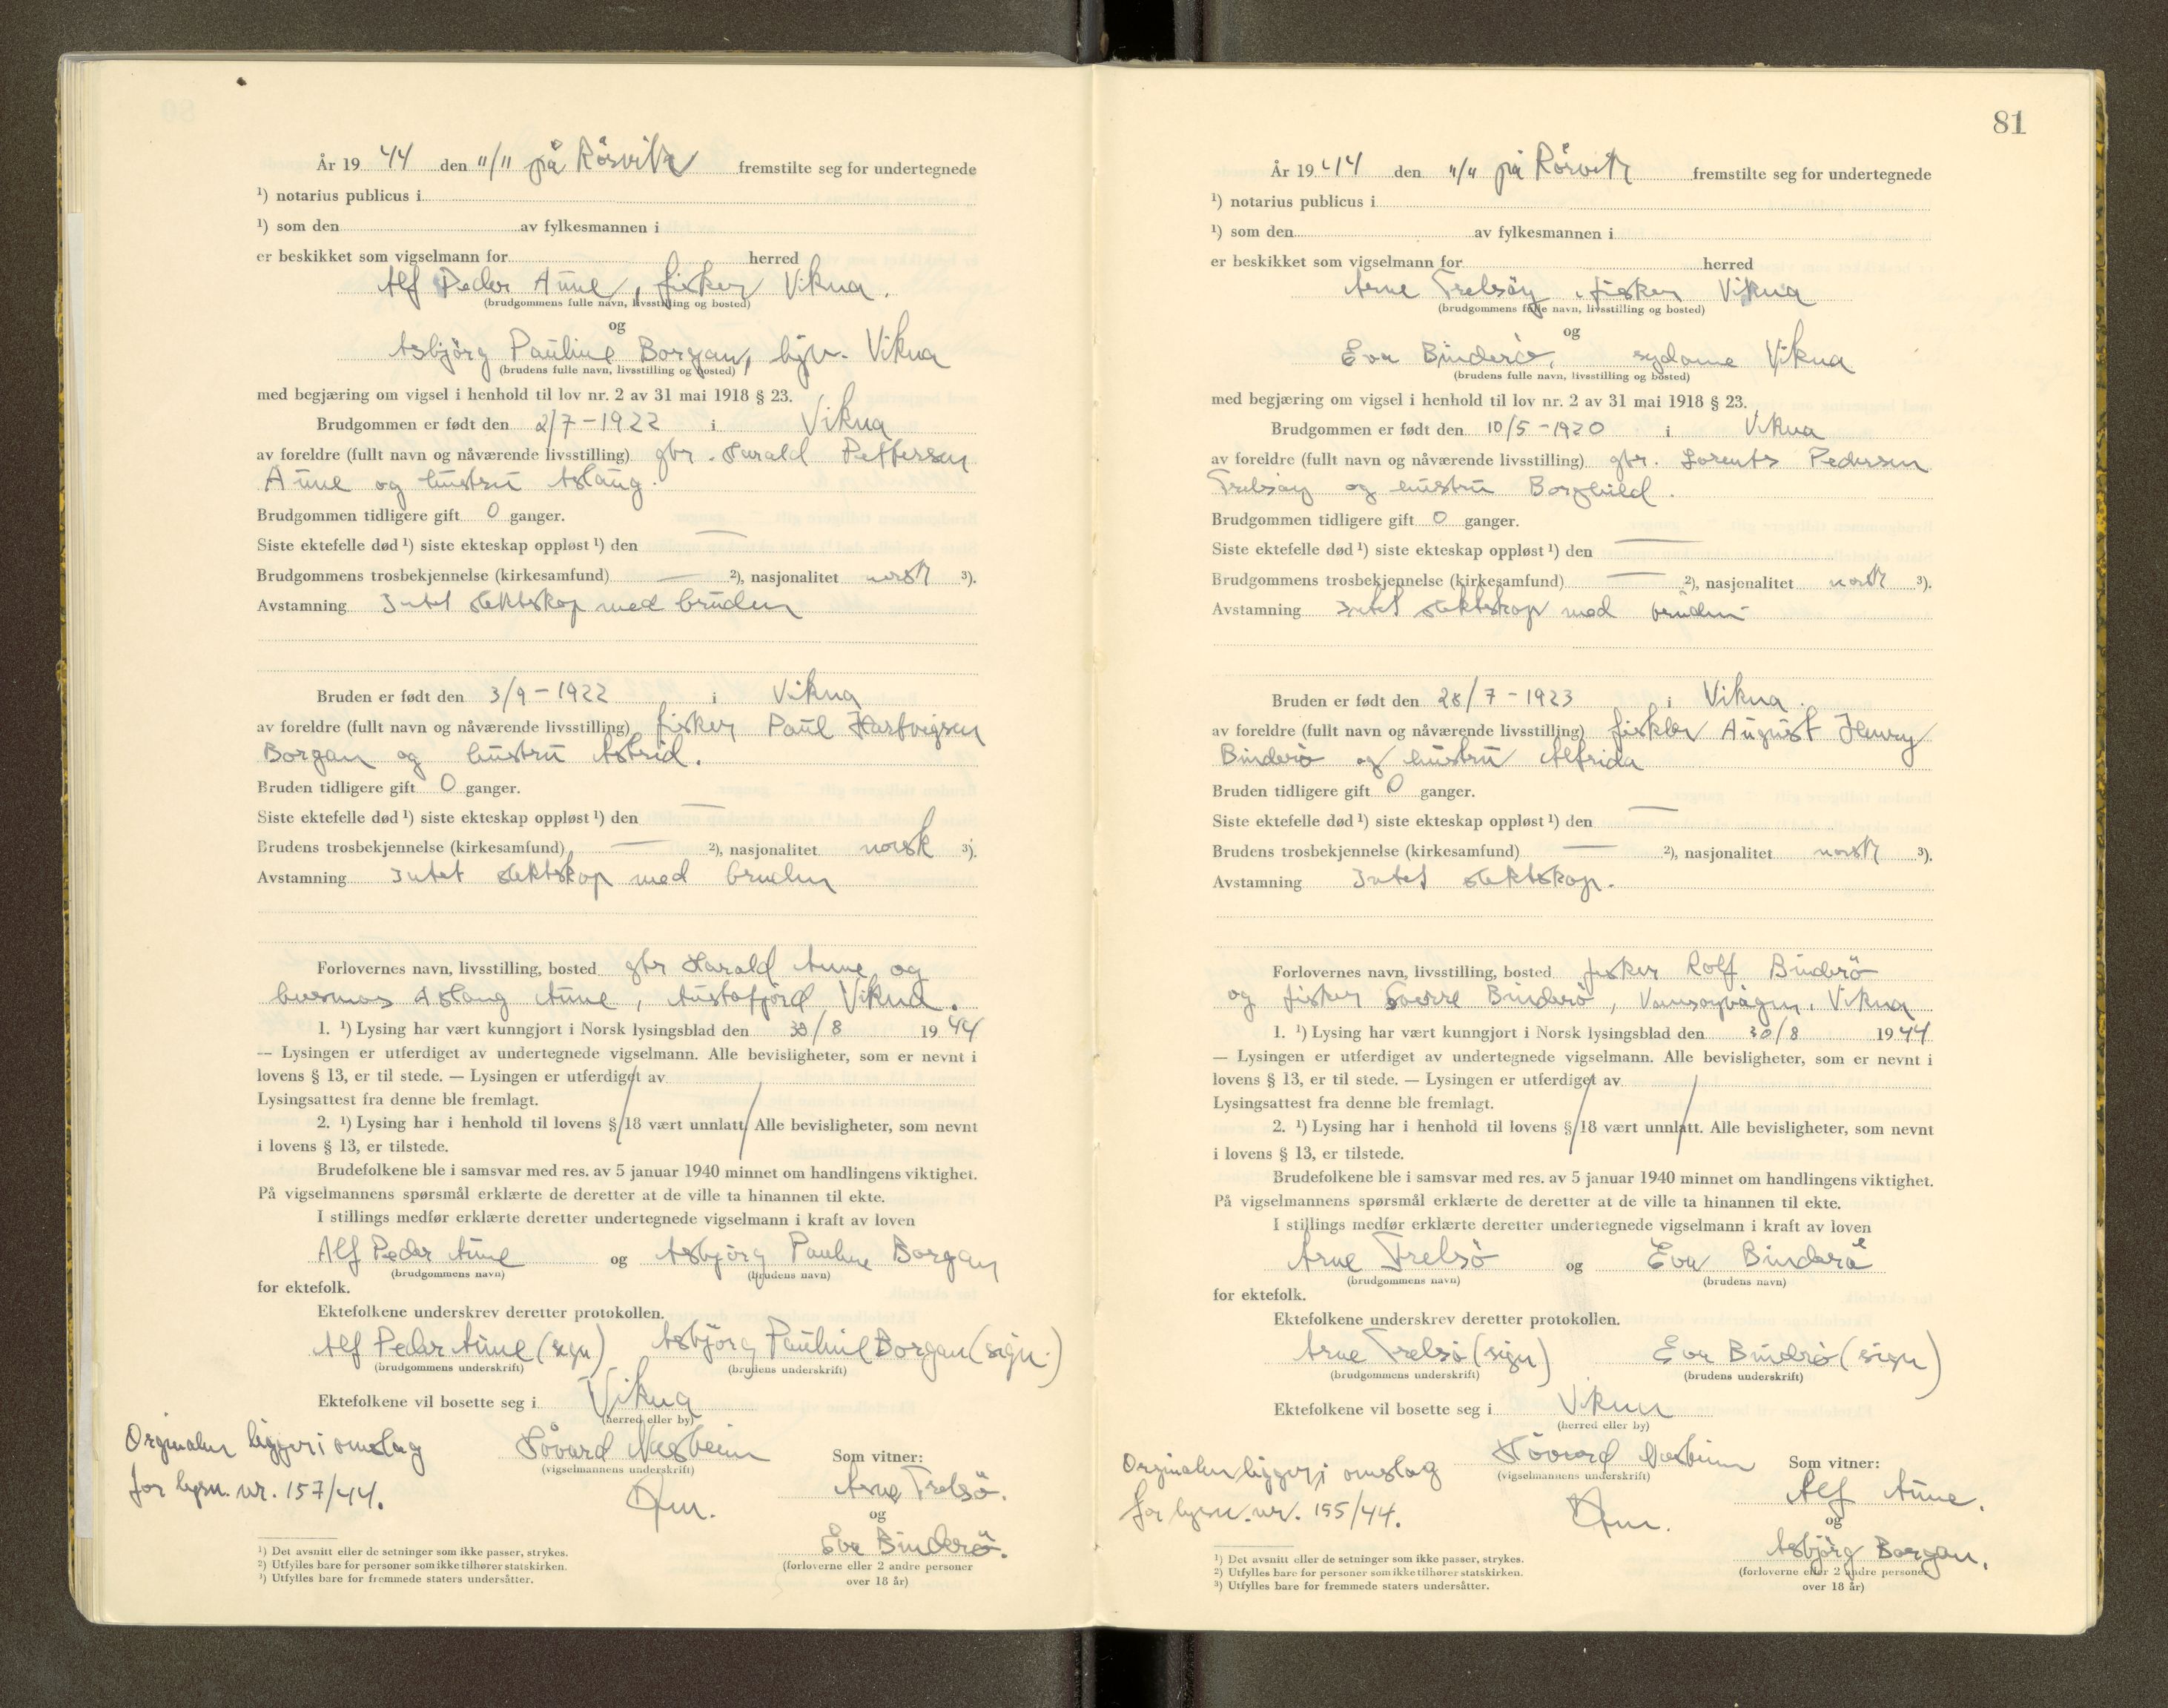 År 19 44 den "/" på Rörvik fremstilte seg for undertegnede
¹) notarius publicus i
¹) som den av fylkesmannen i
er beskikket som vigselmann for herred
Alf Peder Aune, fisker Vikna.
(brudgommens fulle navn, livsstilling og bosted)
og
Asbjörg Pauline Borgan, hjv. Vikna
(brudens fulle navn, livsstilling og bosted)
med begjæring om vigsel i henhold til lov nr. 2 av 31 mai 1918 § 23.
Brudgommen er født den 2/7-1922 i Vikna
av foreldre (fullt navn og nåværende livsstilling) gbr. Harald Pettersen
Aune og hustru Aslaug.
Brudgommen tidligere gift 0 ganger.
Siste ektefelle død ¹) siste ekteskap oppløst ¹) den —
Brudgommens trosbekjennelse (kirkesamfund) — ²), nasjonalitet norsk ³).
Avstamning Intet slektskap med bruden
Bruden er født den 3/9-1922 i Vikna
av foreldre (fullt navn og nåværende livsstilling) fisker Paul Hartvigsen
Borgan og hustru Astrid.
Bruden tidligere gift 0 ganger.
Siste ektefelle død ¹) siste ekteskap oppløst ¹) den —
Brudens trosbekjennelse (kirkesamfund) — ²), nasjonalitet norsk ³).
Avstamning Intet slektskap med bruden
Forlovernes navn, livsstilling, bosted gbr Harald Aune og
Aslaug Aune, Austafjord, Vikna.
1. ¹) Lysing har vært kunngjort i Norsk lysingsblad den 30/8 1944
— Lysingen er utferdiget av undertegnede vigselmann. Alle bevisligheter, som er nevnt i
lovens § 13, er til stede. — Lysingen er utferdiget av
Lysingsattest fra denne ble fremlagt.
2. ¹) Lysing har i henhold til lovens § 18 vært unnlatt. Alle bevisligheter, som nevnt
i lovens § 13, er tilstede.
Brudefolkene ble i samsvar med res. av 5 januar 1940 minnet om handlingens viktighet.
På vigselmannens spørsmål erklærte de deretter at de ville ta hinannen til ekte.
I stillings medfør erklærte deretter undertegnede vigselmann i kraft av loven
Alf Peder Aune og Asbjörg Pauline Borgan
(brudgommens navn) (brudens navn)
for ektefolk.
Ektefolkene underskrev deretter protokollen.
Alf Peder Aune (sgn) Asbjörg Pauline Borgan (sign.)
(brudgommens underskrift) (brudens underskrift)
Ektefolkene vil bosette seg i Vikna
(herred eller by)
Orginalen ligger i omslag
for lysn. nr. 157/44.
Håvard Næsheim
(vigselmannens underskrift)
Som vitner:
Arne Trelsö.
og
Eva Binderö.
(forloverne eller 2 andre personer
over 18 år)
¹) Det avsnitt eller de setninger som ikke passer, strykes.
²) Utfylles bare for personer som ikke tilhører statskirken.
³) Utfylles bare for fremmede staters undersåtter.
81
År 19 44 den "/" på Rörvik fremstilte seg for undertegnede
¹) notarius publicus i
¹) som den av fylkesmannen i
er beskikket som vigselmann for herred
Arne Trelsöy, fisker Vikna
(brudgommens fulle navn, livsstilling og bosted)
og
Eva Binderö, sydame Vikna
(brudens fulle navn, livsstilling og bosted)
med begjæring om vigsel i henhold til lov nr. 2 av 31 mai 1918 § 23.
Brudgommen er født den 10/5-1920 i Vikna
av foreldre (fullt navn og nåværende livsstilling) gbr. Lorents Pedersen
Trelsöy og hustru Borghild.
Brudgommen tidligere gift 0 ganger.
Siste ektefelle død ¹) siste ekteskap oppløst ¹) den —
Brudgommens trosbekjennelse (kirkesamfund) — ²), nasjonalitet norsk ³).
Avstamning Intet slektskap med bruden
Bruden er født den 28/7-1923 i Vikna.
av foreldre (fullt navn og nåværende livsstilling) fisker August Henry
Binderö og hustru Alfrida
Bruden tidligere gift 0 ganger.
Siste ektefelle død ¹) siste ekteskap oppløst ¹) den —
Brudens trosbekjennelse (kirkesamfund) — ²), nasjonalitet norsk ³).
Avstamning Intet slektskap.
Forlovernes navn, livsstilling, bosted fisker Rolf Binderö
og fisker Sverre Binderö, Vikna
1. ¹) Lysing har vært kunngjort i Norsk lysingsblad den 30/8 1944
— Lysingen er utferdiget av undertegnede vigselmann. Alle bevisligheter, som er nevnt i
lovens § 13, er til stede. — Lysingen er utferdiget av
Lysingsattest fra denne ble fremlagt.
2. ¹) Lysing har i henhold til lovens § 18 vært unnlatt. Alle bevisligheter, som nevnt
i lovens § 13, er tilstede.
Brudefolkene ble i samsvar med res. av 5 januar 1940 minnet om handlingens viktighet.
På vigselmannens spørsmål erklærte de deretter at de ville ta hinannen til ekte.
I stillings medfør erklærte deretter undertegnede vigselmann i kraft av loven
Arne Trelsö og Eva Binderö
(brudgommens navn) (brudens navn)
for ektefolk.
Ektefolkene underskrev deretter protokollen.
Arne Trelsö (sign) Eva Binderö (sign)
(brudgommens underskrift) (brudens underskrift)
Ektefolkene vil bosette seg i Vikna
(herred eller by)
Orginalen ligger i omslag
for lysn. nr. 155/44.
Håvard Næsheim
(vigselmannens underskrift)
Som vitner:
Alf Aune.
og
Asbjörg Borgan.
(forloverne eller 2 andre personer
over 18 år)
¹) Det avsnitt eller de setninger som ikke passer, strykes.
²) Utfylles bare for personer som ikke tilhører statskirken.
³) Utfylles bare for fremmede staters undersåtter.